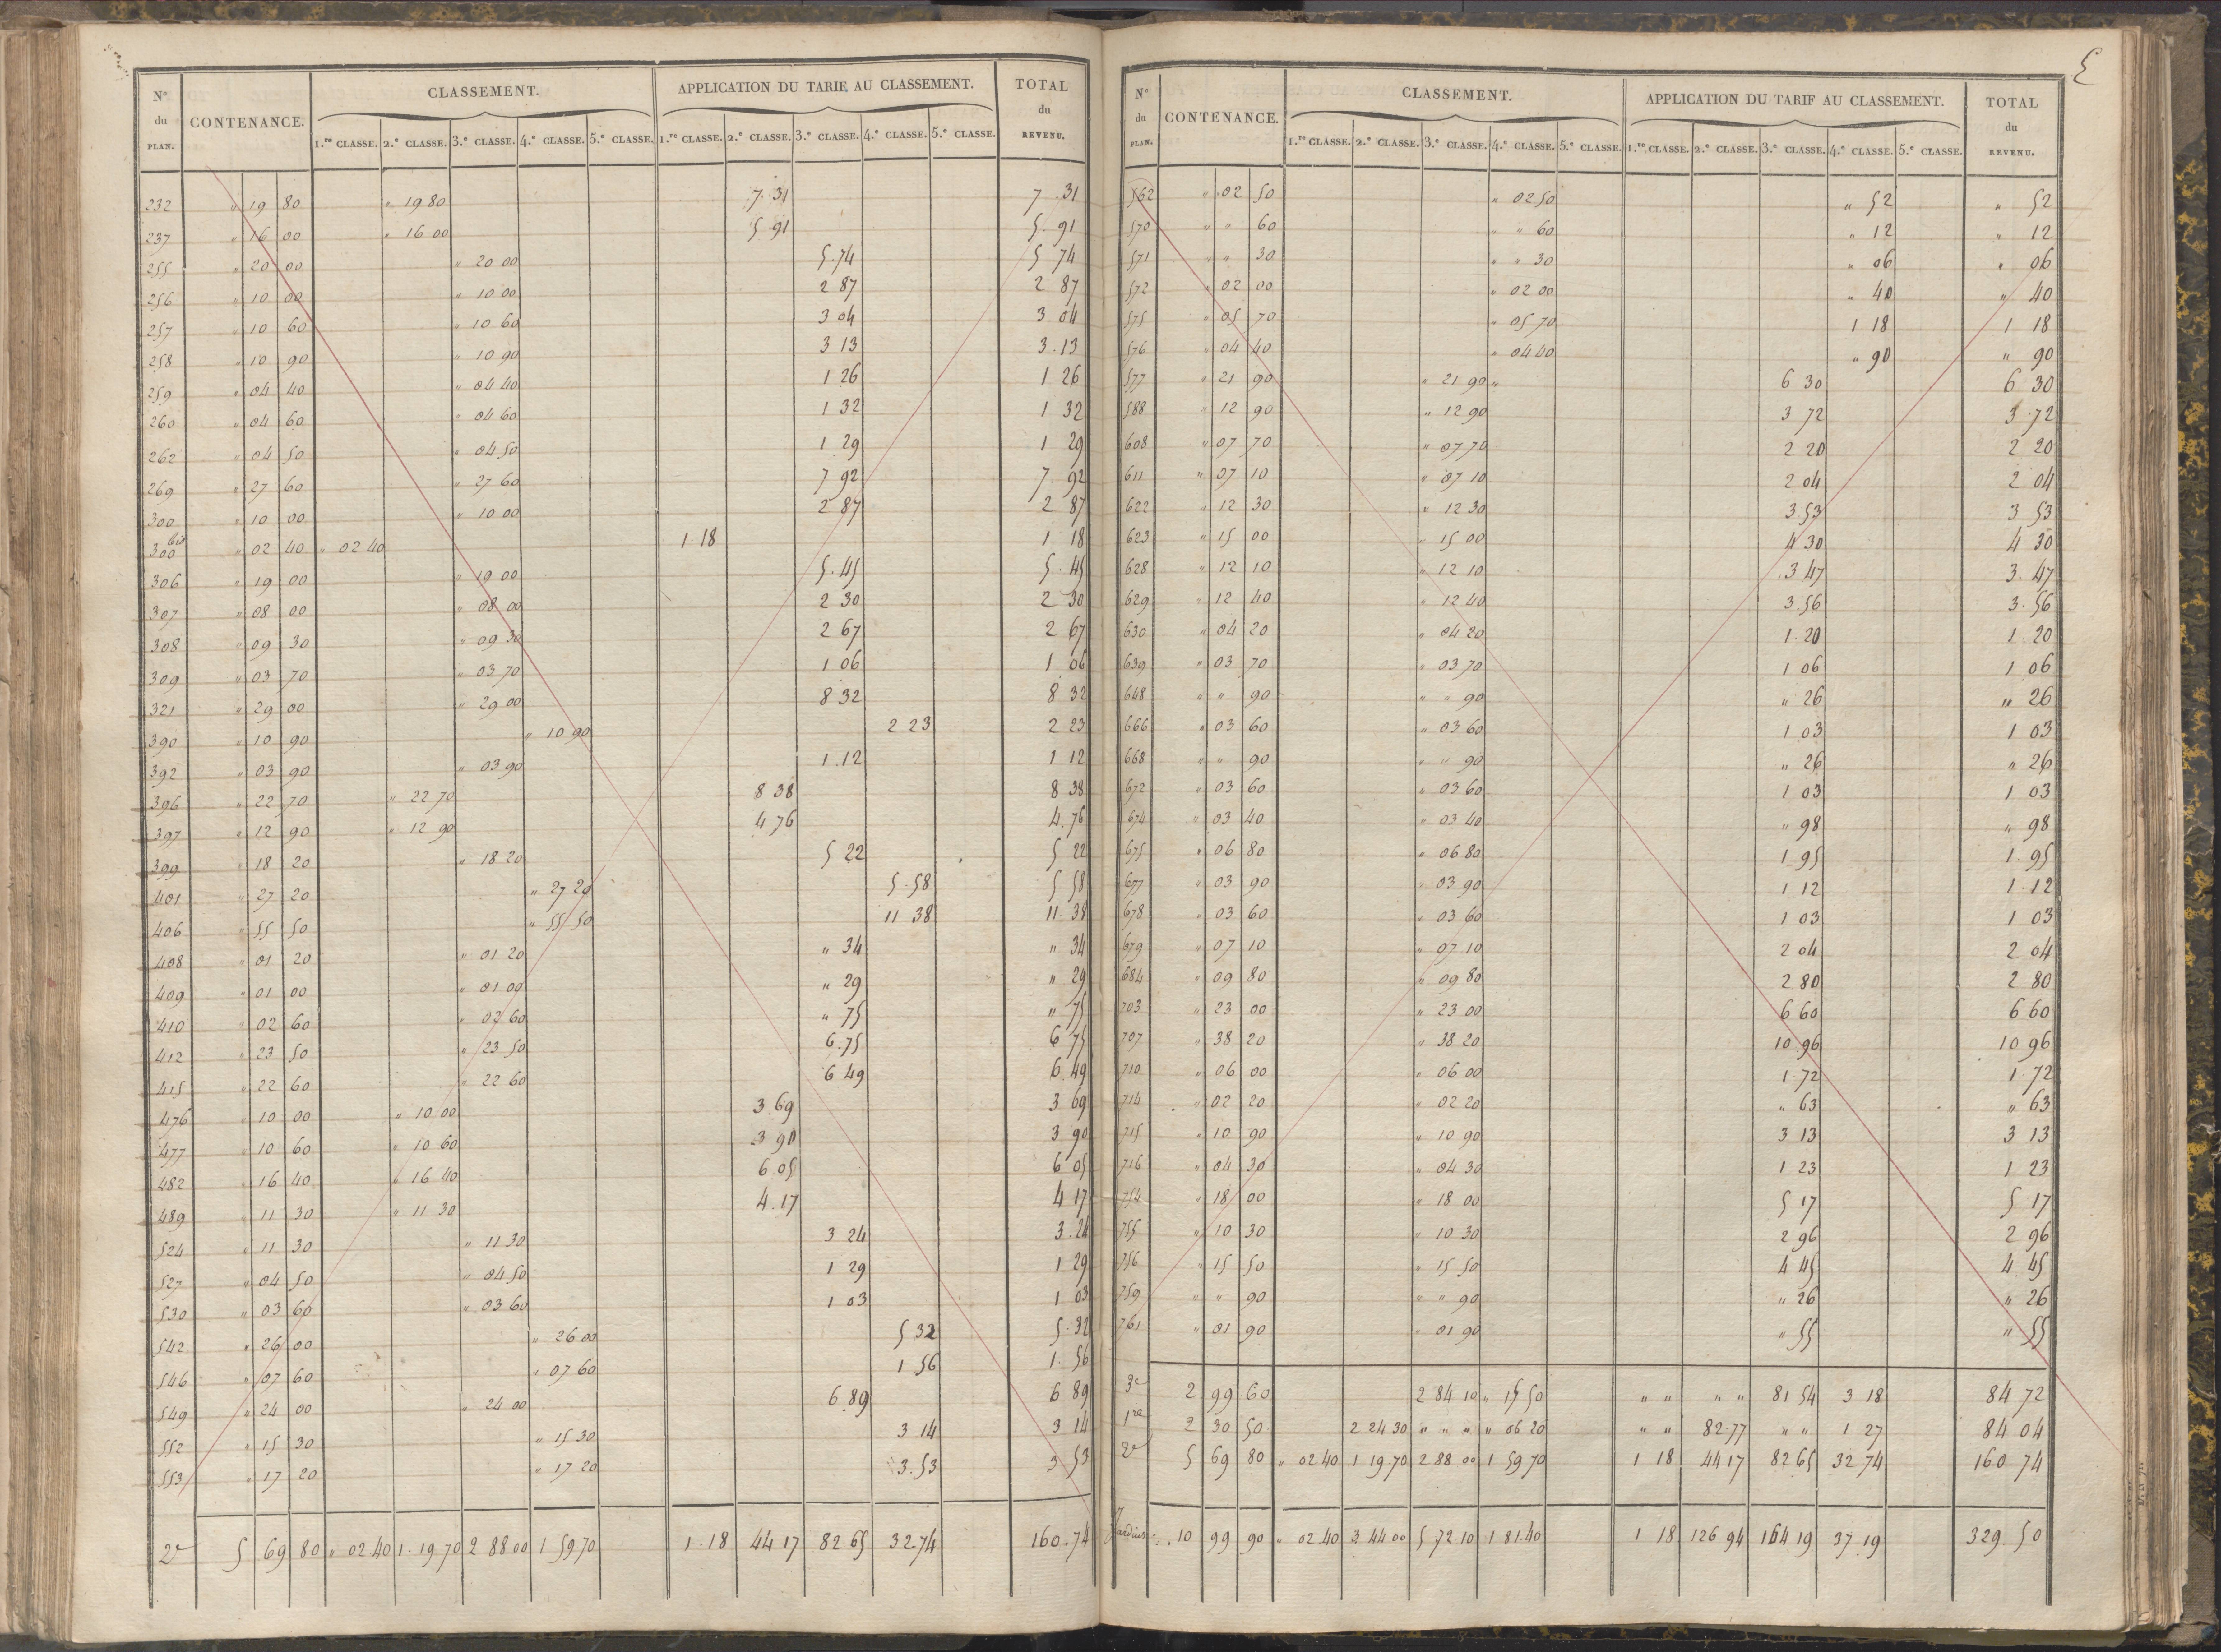 N° du PLAN. CONTENANCE. CLASSEMENT. APPLICATION DU TARIF AU CLASSEMENT. TOTAL du REVENU.
1.re CLASSE. 2.e CLASSE. 3.e CLASSE. 4.e CLASSE. 5.e CLASSE. 1.re CLASSE. 2.e CLASSE. 3.e CLASSE. 4.e CLASSE. 5.e CLASSE.
232 " 19 80 " 19 80 7.31 7.31
237 " 16 00 " 16 00 5 91 5.91
255 " 20 00 " 20 00 5.74 5 74
256 " 10 00 " 10 00 2 87 2 87
257 " 10 60 " 10 60 3 04 3 04
258 " 10 90 " 10 90 3 13 3.13
259 " 04 40 " 04 40 1 26 1 26
260 " 04 60 " 04 60 1 32 1 32
262 " 04 50 " 04 50 1 29 1 29
269 " 27 60 " 27 60 7 92 7 92
300 " 10 00 " 10 00 2 87 2 87
300 bis " 02 40 " 02 40 1.18 1 18
306 " 19 00 " 19 00 5.45 5.45
307 " 08 00 " 08 00 2 30 2 30
308 " 09 30 " 09 30 2 67 2 67
309 " 03 70 " 03 70 1 06 1 06
321 " 29 00 " 29 00 8 32 8 32
390 " 10 90 " 10 90 2 23 2 23
392 " 03 90 " 03 90 1.12 1 12
396 " 22 70 " 22 70 8 38 8 38
397 " 12 90 " 12 90 4 76 4.76
399 " 18 20 " 18 20 5 22 5 22
401 " 27 20 " 27 20 5.58 5 58
406 " 55 50 " 55 50 11 38 11.38
408 " 01 20 " 01 20 " 34 " 34
409 " 01 00 " 01 00 " 29 " 29
410 " 02 60 " 02 60 " 75 " 75
412 " 23 50 " 23 50 6.75 6 75
415 " 22 60 " 22 60 6 49 6.49
476 " 10 00 " 10 00 3.69 3 69
477 " 10 60 " 10 60 3 90 3 90
482 " 16 40 " 16 40 6 05 6 05
489 " 11 30 " 11 30 4.17 4 17
524 " 11 30 " 11 30 3 24 3.24
527 " 04 50 " 04 50 1 29 1 29
530 " 03 60 " 03 60 1 03 1 03
542 " 26 00 " 26 00 5 32 5.32
546 " 07 60 " 07 60 1 56 1.56
549 " 24 00 " 24 00 6.89 6 89
552 " 15 30 " 15 30 3 14 3 14
553 " 17 20 " 17 20 3.53 3 53
2e 5 69 80 " 02.40 1.19.70 2 88 00 1 59.70 1.18 44 17 82 65 32.74 160.74
N° du PLAN. CONTENANCE. CLASSEMENT. APPLICATION DU TARIF AU CLASSEMENT. TOTAL du REVENU.
1.re CLASSE. 2.e CLASSE. 3.e CLASSE. 4.e CLASSE. 5.e CLASSE. 1.re CLASSE. 2.e CLASSE. 3.e CLASSE. 4.e CLASSE. 5.e CLASSE.
562 " 02 50 " 02 50 " 52 " 52
570 " " 60 " " 60 " 12 " 12
571 " " 30 " " 30 " 06 " 06
572 " 02 00 " 02 00 " 40 " 40
575 " 05 70 " 05 70 1 18 1 18
576 " 04 40 " 04 40 " 90 " 90
577 " 21 90 " 21 90 " 6 30 6 30
588 " 12 90 " 12 90 3 72 3.72
608 " 07 70 " 07 70 2 20 2 20
611 " 07 10 " 07 10 2 04 2 04
622 " 12 30 " 12 30 3.53 3 53
623 " 15 00 " 15 00 4 30 4 30
628 " 12 10 " 12 10 3 47 3.47
629 " 12 40 " 12 40 3.56 3.56
630 " 04 20 " 04 20 1.20 1.20
639 " 03 70 " 03 70 1 06 1 06
648 " " 90 " " 90 " 26 " 26
666 " 03 60 " 03 60 1 03 1 03
668 " " 90 " " 90 " 26 " 26
672 " 03 60 " 03 60 1 03 1 03
674 " 03 40 " 03 40 " 98 " 98
675 " 06 80 " 06 80 1.95 1.95
677 " 03 90 " 03 90 1 12 1.12
678 " 03 60 " 03 60 1 03 1 03
679 " 07 10 " 07 10 2 04 2 04
684 " 09 80 " 09 80 2 80 2 80
703 " 23 00 " 23 00 6 60 6 60
707 " 38 20 " 38 20 10.96 10 96
710 " 06 00 " 06 00 1.72 1.72
714 " 02 20 " 02 20 " 63 " 63
715 " 10 90 " 10 90 3 13 3 13
716 " 04 30 " 04 30 1 23 1 23
754 " 18 00 " 18 00 5 17 5 17
755 " 10 30 " 10 30 2 96 2 96
756 " 15 50 " 15 50 4 45 4.45
759 " " 90 " " 90 " 26 " 26
761 " 01 90 " 01 90 " 55 " 55
3e 2 99 60 2 84 10 " 15 50 " " " " 81 54 3 18 84 72
1re 2 30 50 2 24 30 " " " " 06 20 " " 82.77 " " 1 27 84 04
2e 5 69 80 " 02 40 1 19.70 2 88 00 1 59 70 1 18 44 17 82 65 32 74 160 74
Jardins. 10 99 90 " 02.40 3 44 00 5 72 10 1 81.40 1 18 126 94 164 19 37.19 329 50